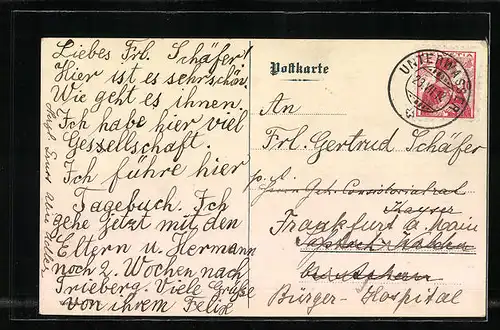 Liebes Frl. Schäfer!
Hier ist es sehr schön.
Wie geht es ihnen.
Ich habe hier viel
Gessellschaft.
Ich führe hier
Tagebuch. Ich
gehe jetzt mit den
Eltern u. Hermann
noch 2. Wochen nach
Trieberg. Viele Grüße
von ihrem Felix
Postkarte
UNTERWASSER
An
Frl. Gertrud Schäfer
Herrn Geh. Consistorialrat
Kayser
Frankfurt a. Main
Bürger-Hospital